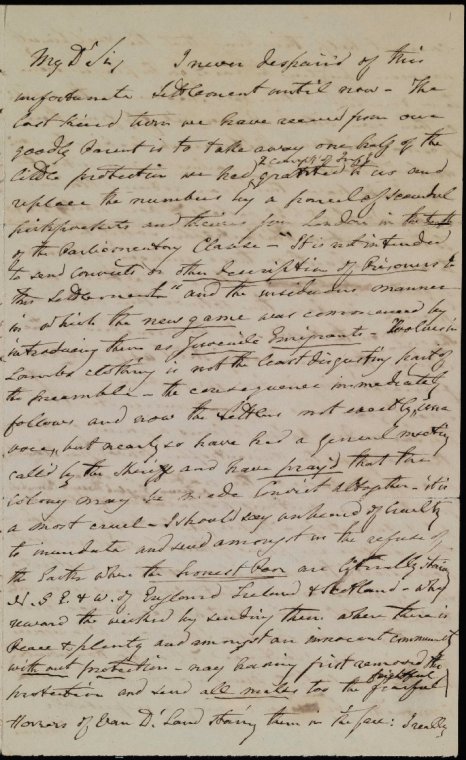 My Dr Sir, I never despair'd of this
unfortunate Settlement until now - The
last kind turn we have received from our
goodly Parent is to take away one half of the
little protection we had granted to us and
replace the numbers by a parcel of scoundrel
pickpockets and thieves from London in the teeth
of the Parliamentary Clause - "It is not intended
to send Convicts or other description of Prisoners to
this Settlement" and the insidious manner
in which the new game was commenced by
introducing them as Juvenile Emigrants - Wolves in
Lambs clothing is not the least disgusting part of
the preamble - the consequence immediately
follows and now the Settlers not exactly, una
voce, but nearly so have had a general meeting
called by the Sheriff and have pray'd that the
Colony may be made Convict altogether - it is
a most cruel - I should say unheard of Cruelty
to inundate and send amongst us the refuse of
the Earth when the honest Poor are literally starving
N. S. E. & W. of England Ireland & Scotland - why
reward the wicked by sending them where there is
Peace & plenty and amongst an innocent community
without protection - nay having first removed the
protection and send all males too the frightful
Horrors of Van Ds Land staring them in the face: I really